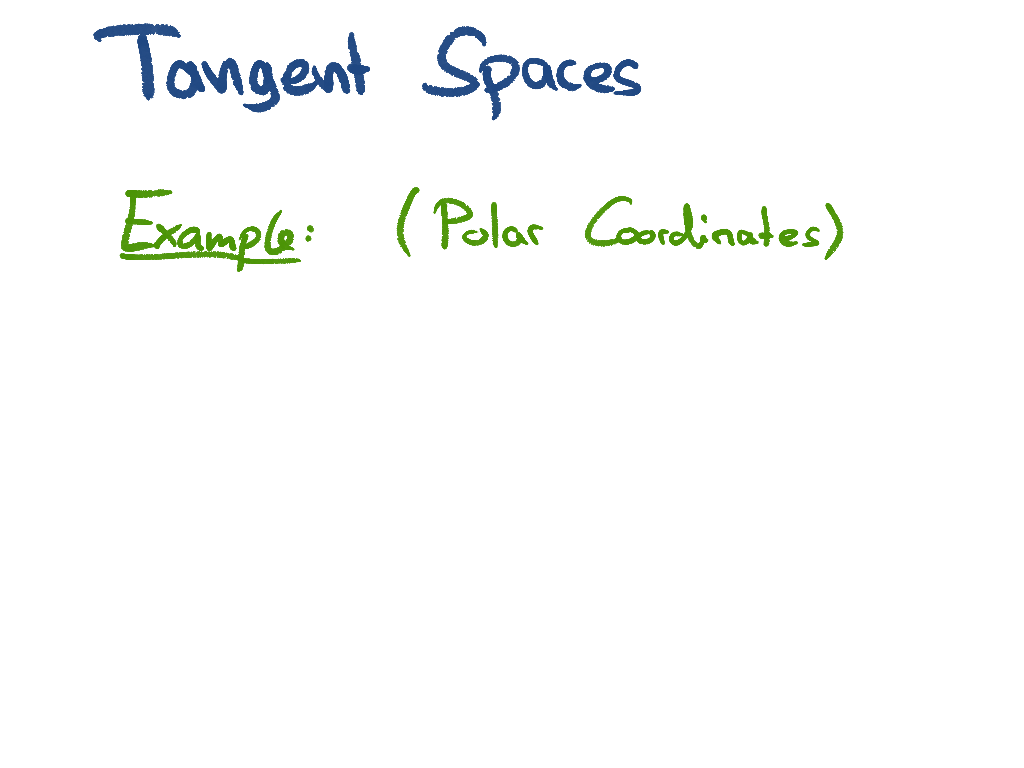 Tangent Spaces
Example: (Polar Coordinates)